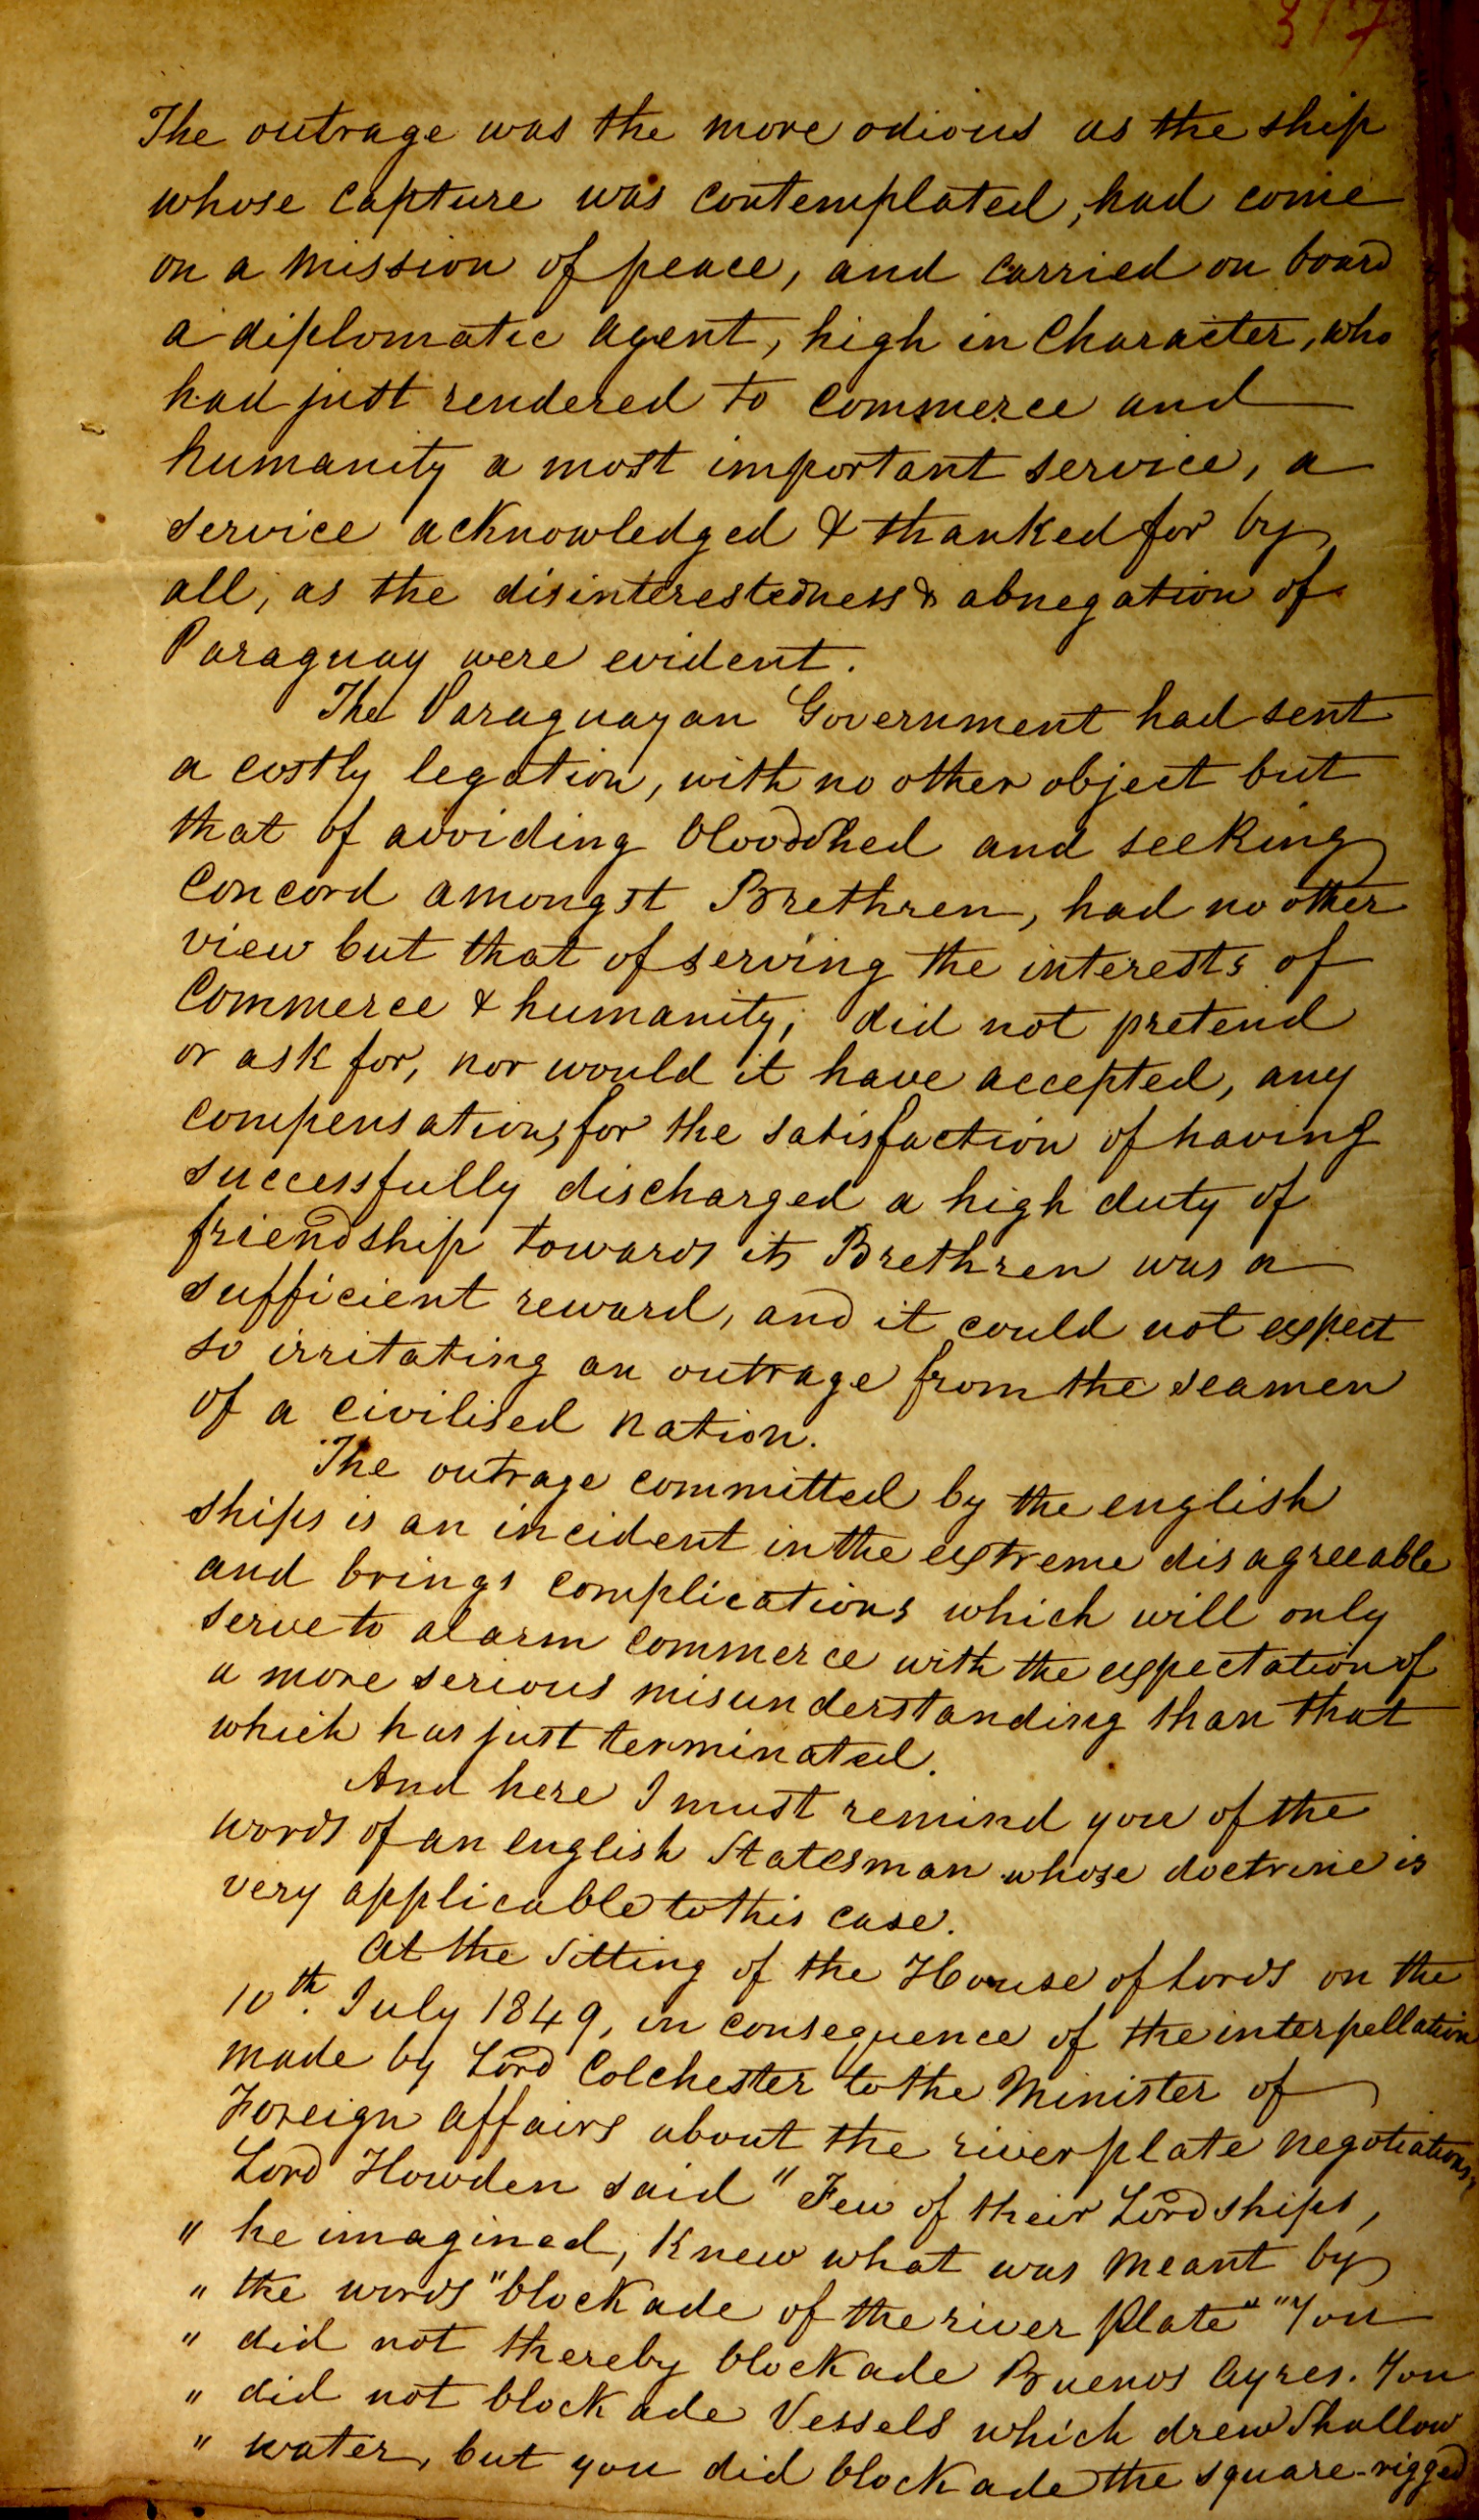 317
The outrage was the more odious as the ship
whose capture was contemplated, had come
on a mission of peace, and carried on board
a diplomatic agent, high in Character, who
had just rendered to commerce and
humanity a most important service, a
service acknowledged & thanked for by
all, as the disinterestedness & abnegation of
Paraguay were evident.
The Paraguayan Government had sent
a costly legation, with no other object but
that of avoiding bloodshed and seeking
Concord amongst Brethren, had no other
view but that of serving the interests of
Commerce & humanity; did not pretend
or ask for, nor would it have accepted, any
compensation, for the satisfaction of having
successfully discharged a high duty of
friendship towards its Brethren was a
sufficient reward, and it could not expect
so irritating an outrage from the seamen
of a civilised nation.
The outrage committed by the english
ships is an incident in the extreme disagreeable
and brings complications which will only
serve to alarm commerce with the expectation of
a more serious misunderstanding than that
which has just terminated.
And here I must remind you of the
words of an english Statesman whose doctrine is
very applicable to this case.
At the Sitting of the House of Lords on the
10th. July 1849, in consequence of the interpellation
made by Lord Colchester to the Minister of
Foreign affairs about the river plate negotiations,
Lord Howden said "Few of their Lordships,
" he imagined, Knew what was meant by
" the words "blockade of the river Plate" "You
" did not thereby blockade Buenos Ayres. You
" did not blockade Vessels which drew Shallow
" water, but you did blockade the square-rigged